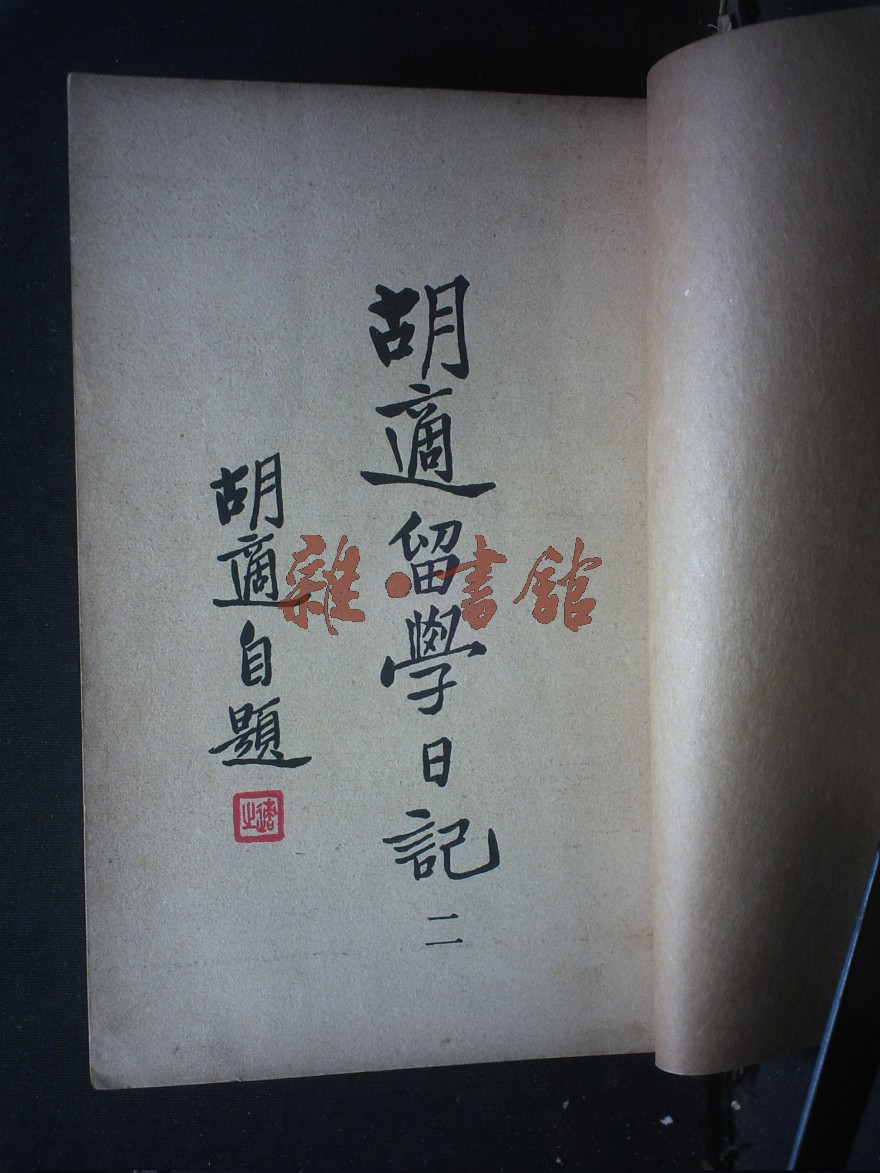 胡適留學日記
二
胡適自題
適之
雜·書館